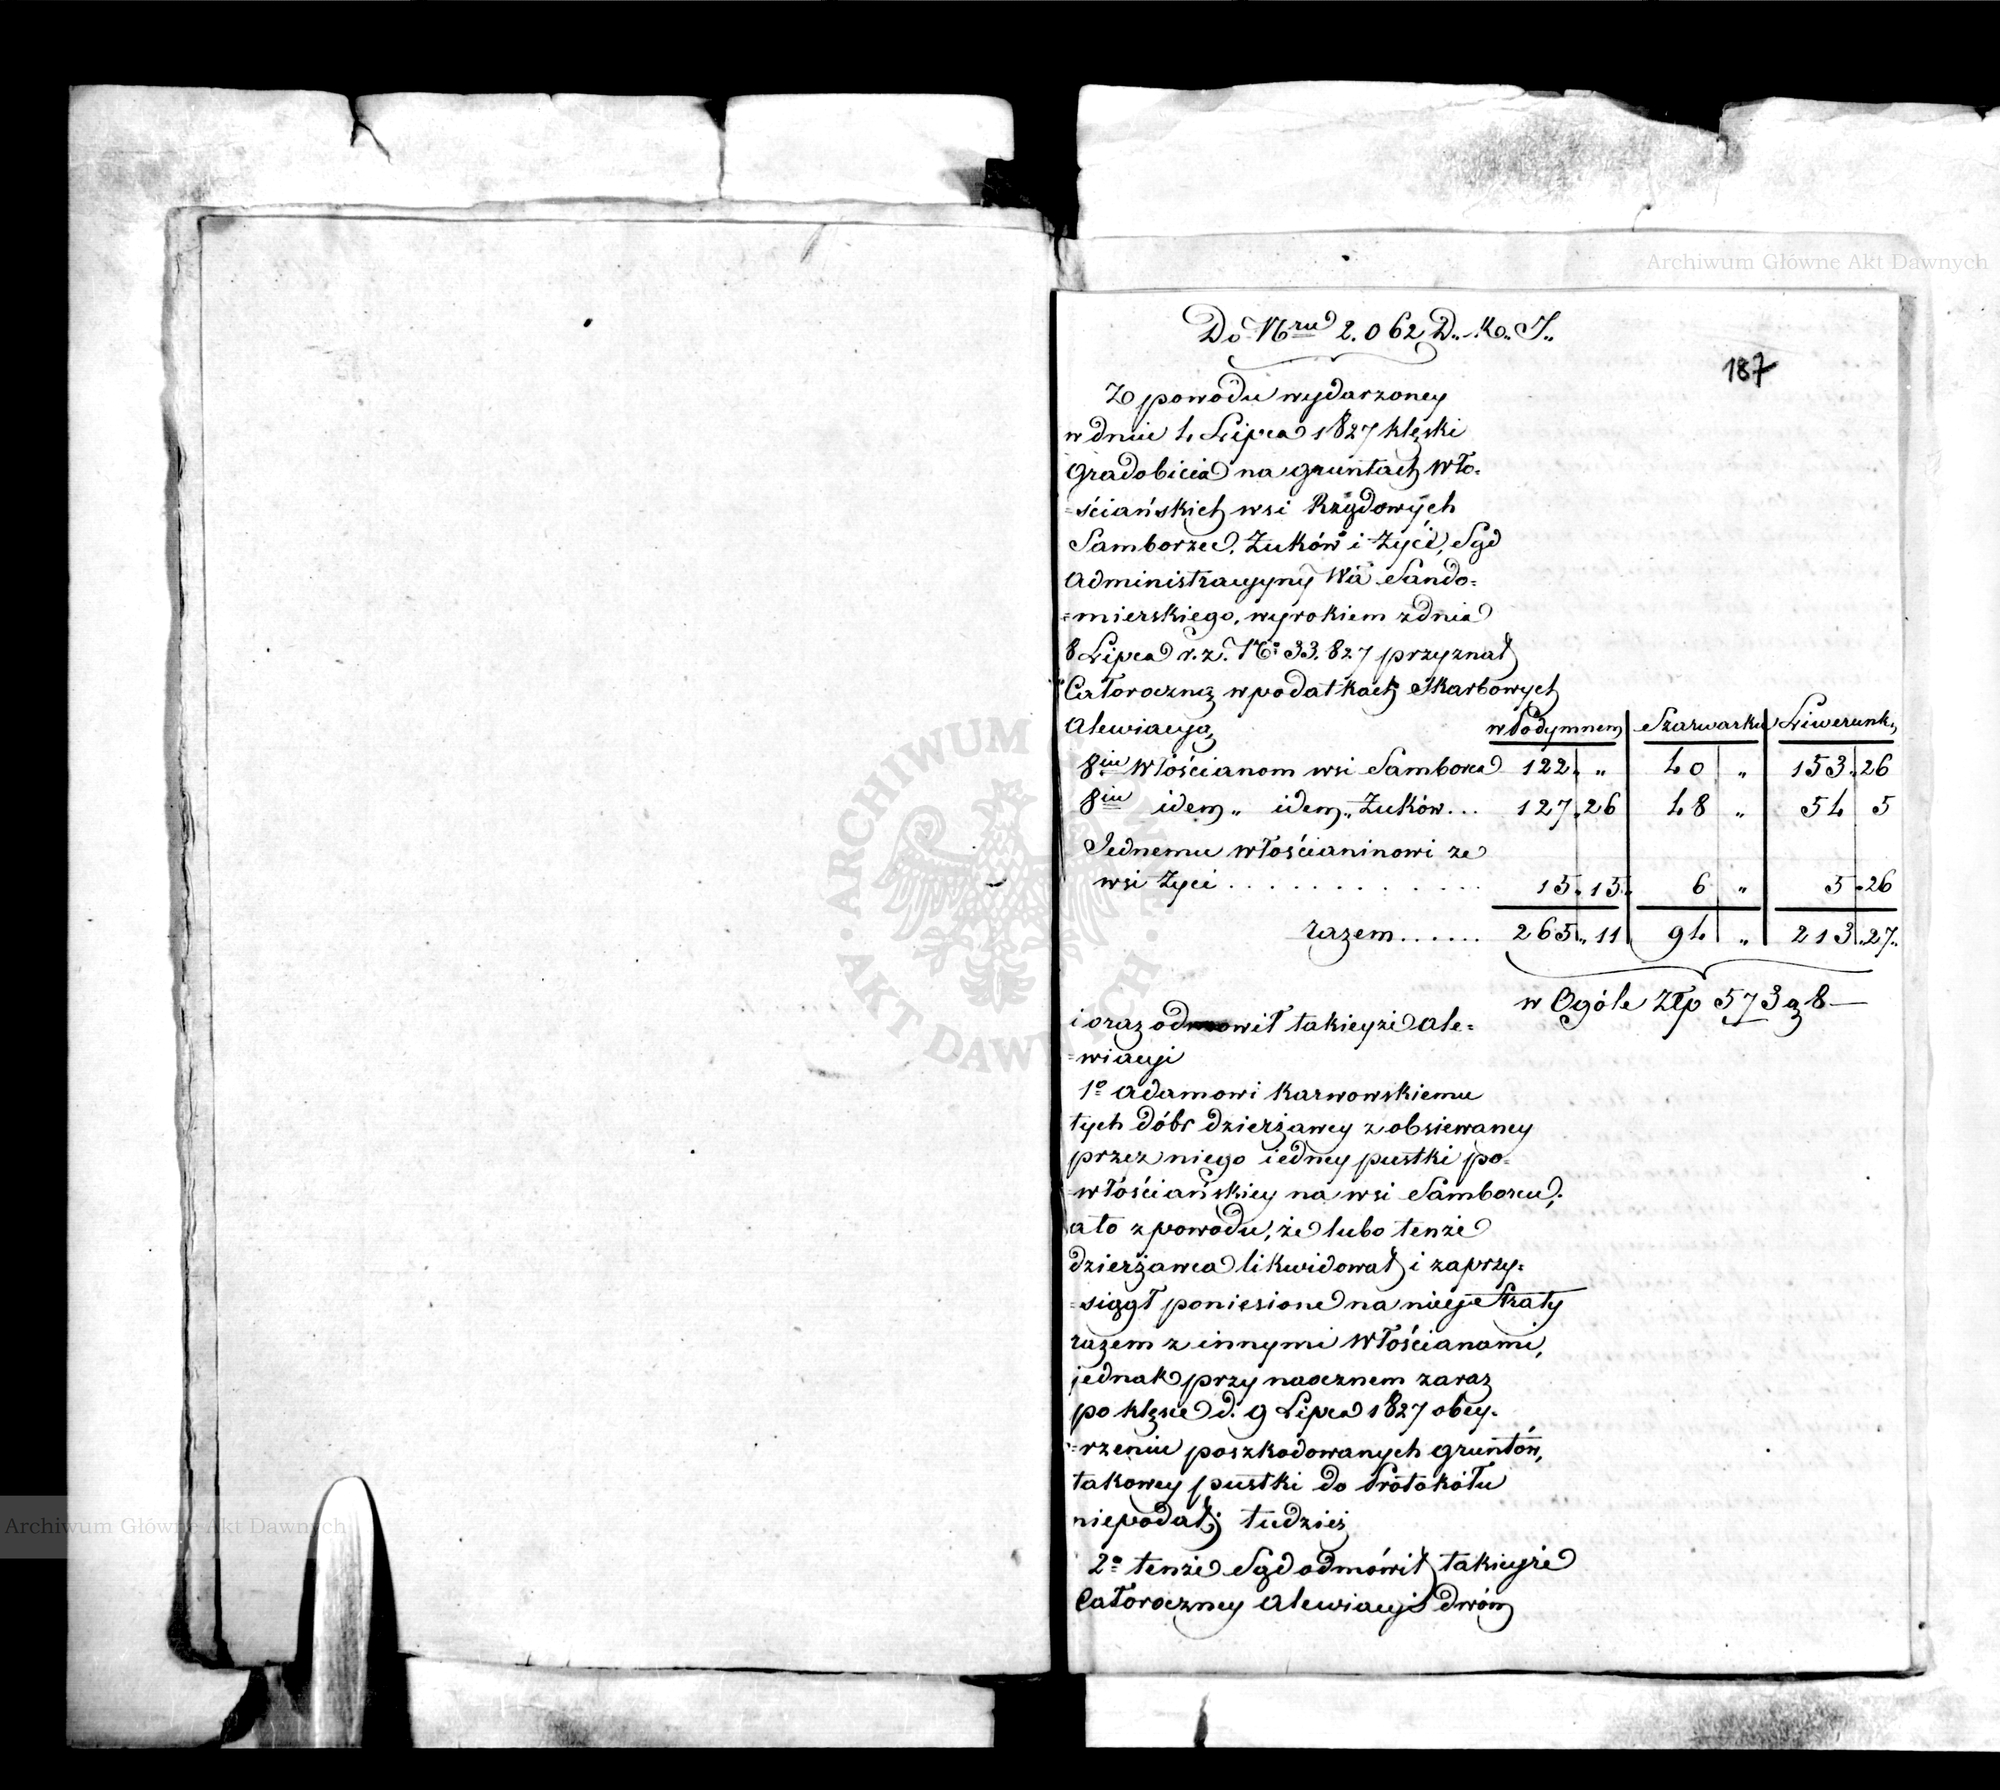 Archiwum Główne Akt Dawnych
Do Nru 2.062 D.. Ko.. J..
187
Z powodu wydarzoney
w dniu 4 Lipca 1827 klęski
Gradobicia na gruntach Wło=
=ściańskich wsi Rządowych
Samborzec, Żuków i Życi, Sąd
Administracyjny Wa Sando=
=mierskiego, wyrokiem z dnia
8 Lipca r. z. No 33.827 przyznał
Całoroczną w podatkach Skarbowych
Alewiacyą w Podymnem Szarwarku Liwerunk.
8iu Włościanom wsi Samborca 122 " 40 " 153 " 26
8iu idem " idem " Żuków ... 127 " 26 48 " 54 5
Jednemu włościaninowi ze
wsi Życi . . . . . . . . . . 15 " 15 6 " 5 " 26
razem ...... 265 " 11 94 " 213 " 27
w Ogóle Złp 573 g 8 —
i oraz odmowił takieyże Ale=
=wiacyi
1o Adamowi Karwowskiemu
tych dóbr dzierżawcy z obsiewaney
przez niego iedney pustki po=
=włościańskiey na wsi Samborcu;
a to z powodu, że lubo tenże
dzierżawca likwidował i zaprzy=
=siągł poniesione na niey straty
razem z innymi Włościanami,
jednak przy naocznem zaraz
po klęsce d. 9 Lipca 1827 obey=
=rzeniu poszkodowanych gruntów,
takowey pustki do Protokółu
niepodał; tudzież
2o tenże Sąd odmówił takieyże
Całoroczney Alewiacyi dwóm
ARCHIWUM GŁÓWNE AKT DAWNYCH
Archiwum Główne Akt Dawnych